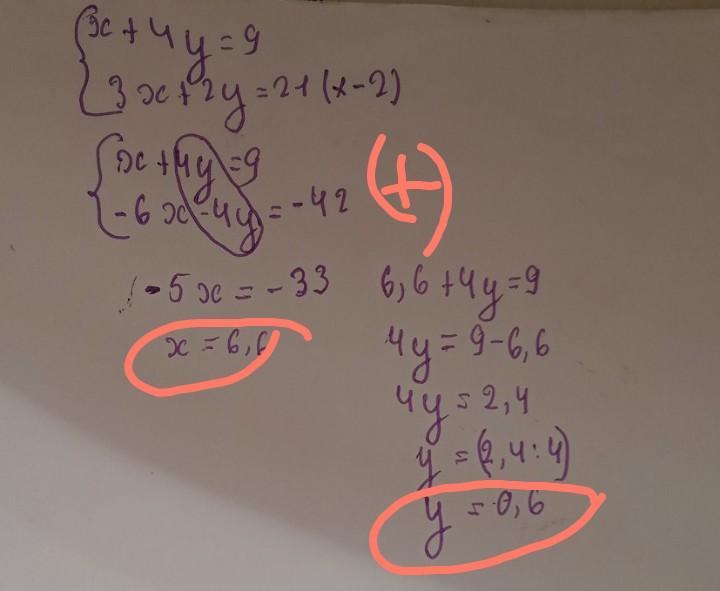 x + 4y = 9
3x + 2y = 21 (x-2)
x + 4y = 9
-6x - 4y = -42
(+)
-5x = -33
x = 6,6
6,6 + 4y = 9
4y = 9 - 6,6
4y = 2,4
y = (2,4 : 4)
y = 0,6